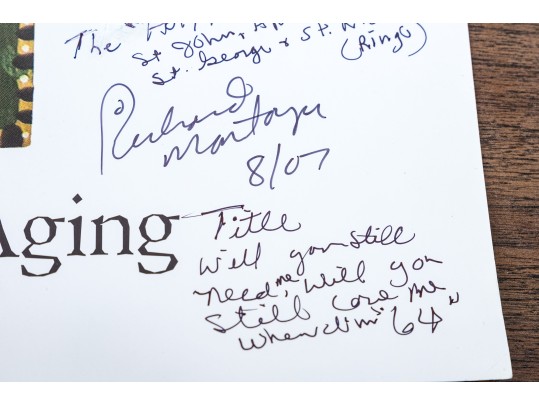 The
St John, 
St. George & St.
(Ringo)
Richard
Montoya
8/07
Aging
Title
Will you still
need me, will you
still love me
when I'm "64"